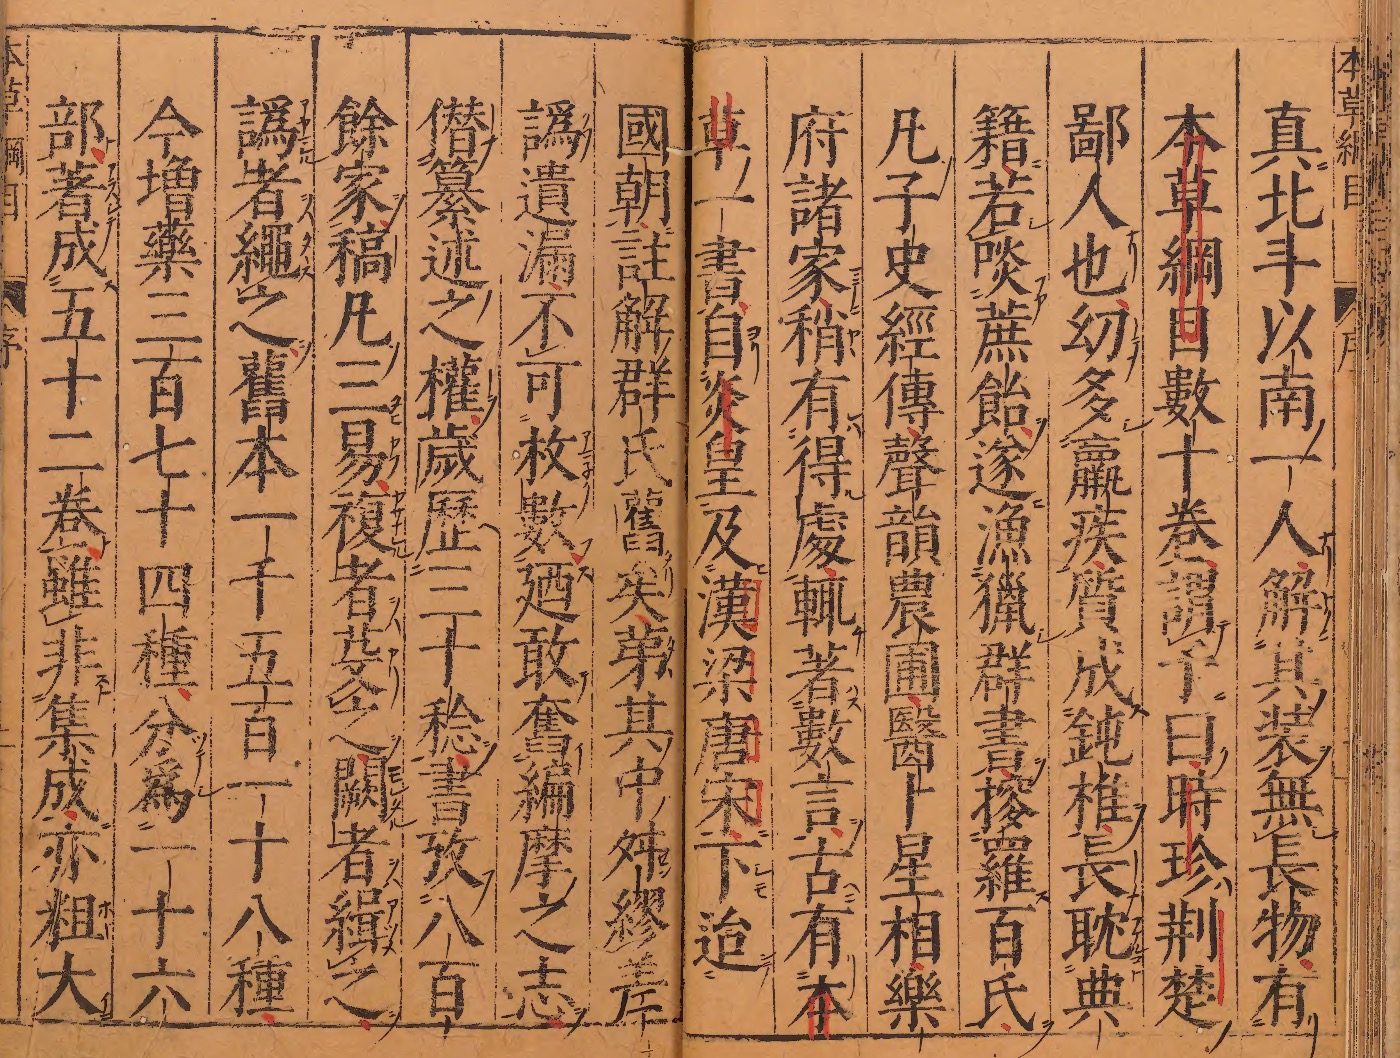 本草綱目 序
真北斗以南一人解其装無長物有
本草綱目數十卷謂予曰時珍荆楚
鄙人也幼多羸疾質成鈍椎長耽典
籍若啖蔗飴遂漁獵群書搜羅百氏
凡子史經傳聲韻農圃醫卜星相樂
府諸家稍有得處輒著數言古有本
草一書自炎皇及漢梁唐宋下迨
國朝註解群氏舊矣第其中舛繆差
譌遺漏不可枚數廼敢奮編摩之志
僣纂述之權歲歷三十稔書攷八百
餘家稿凡三易複者芟之闕者緝之
譌者繩之舊本一千五百一十八種
今增藥三百七十四種分爲一十六
部著成五十二卷雖非集成亦粗大
本草綱目 序